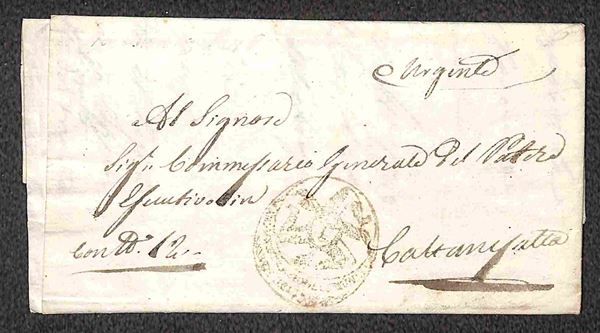 Urgente
Al Signore
Sig.r Commessario Generale del Potere
Esecutivo in
Con Do. 12.
Caltanisetta